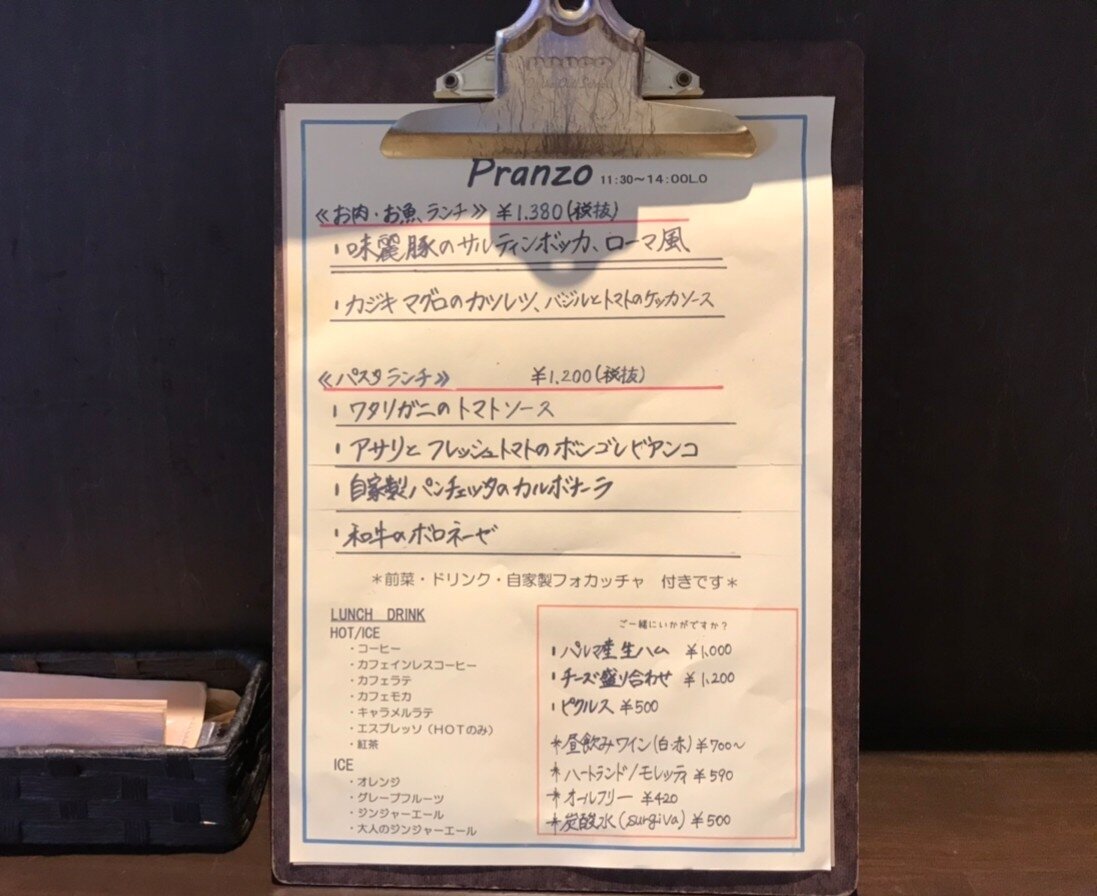 Pranzo 11:30～14:00L.O
≪お肉・お魚ランチ≫ ¥1.380(税抜)
・味麗豚のサルティンボッカ、ローマ風
・カジキマグロのカツレツ、バジルとトマトのケッカソース
≪パスタランチ≫ ¥1.200(税抜)
・ワタリガニのトマトソース
・アサリとフレッシュトマトのボンゴレビアンコ
・自家製パンチェッタのカルボナーラ
・和牛のボロネーゼ
＊前菜・ドリンク・自家製フォカッチャ 付きです＊
LUNCH DRINK
HOT/ICE
・コーヒー
・カフェインレスコーヒー
・カフェラテ
・カフェモカ
・キャラメルラテ
・エスプレッソ（HOTのみ）
・紅茶
ICE
・オレンジ
・グレープフルーツ
・ジンジャーエール
・大人のジンジャーエール
ご一緒にいかがですか？
・パルマ産生ハム ¥1,000
・チーズ盛り合わせ ¥1,200
・ピクルス ¥500
＊昼飲みワイン(白・赤)¥700～
＊ハートランド/モレッティ ¥590
＊オールフリー ¥420
＊炭酸水(surgiva) ¥500